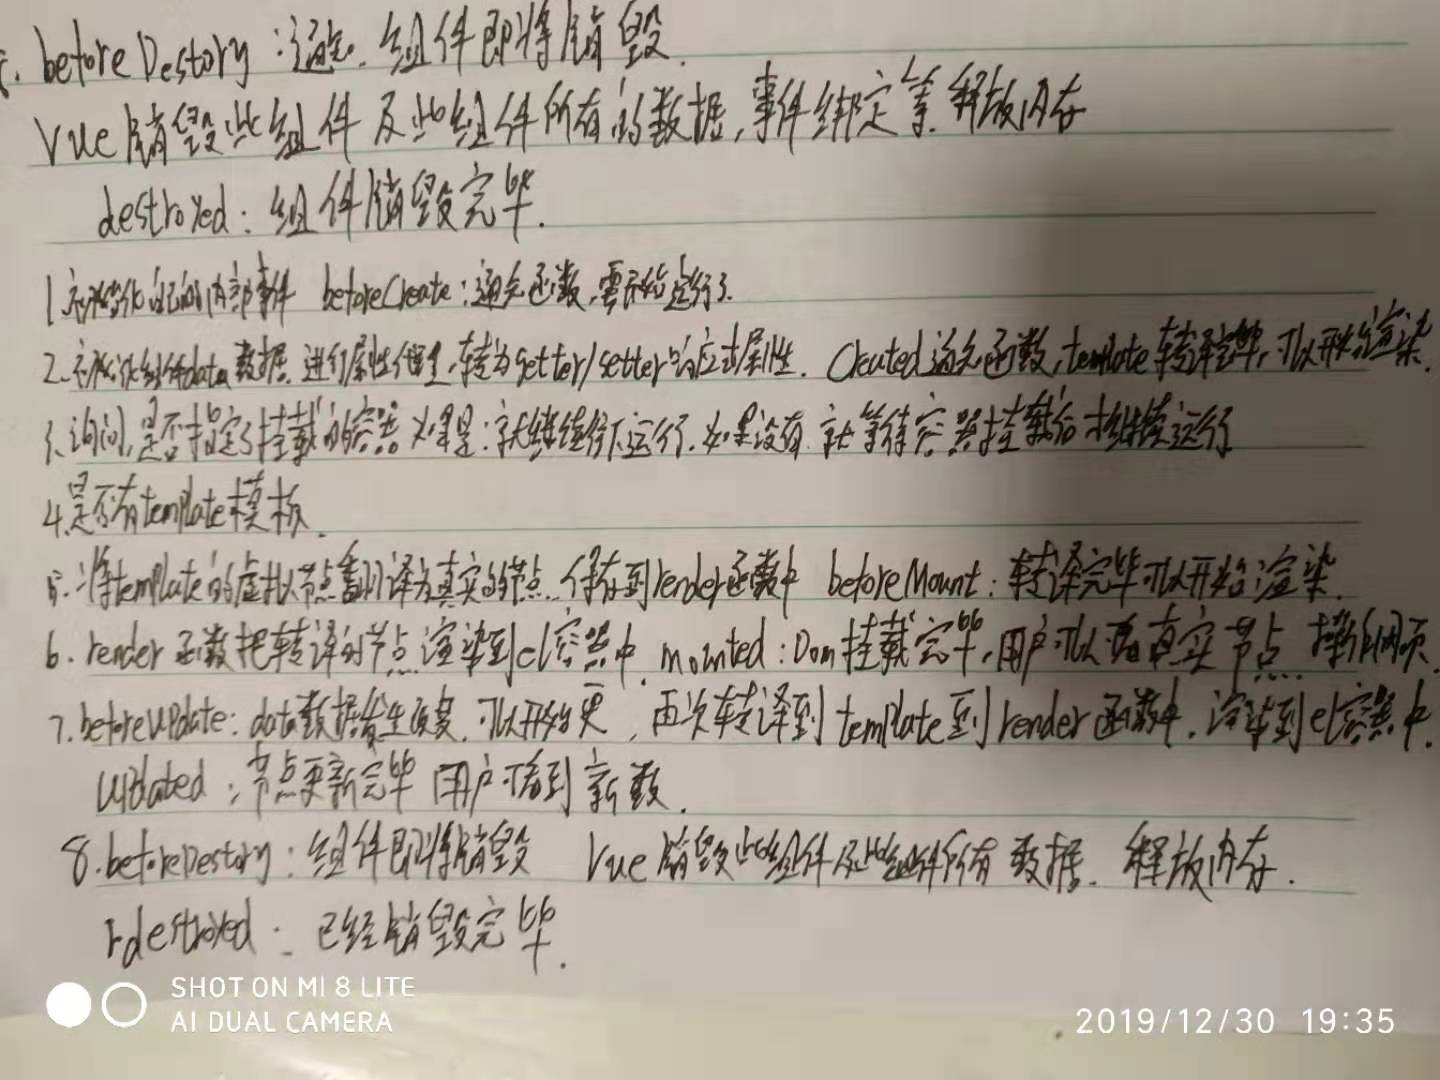 beforeDestory:通知.组件即将销毁.
Vue销毁此组件及此组件所有的数据,事件绑定等.释放内存
destroyed:组件销毁完毕.
1.初始化 内部事件 beforeCreate:通知函数,要开始运行了.
2.初始化组件data数据.进行属性 ,转为getter/setter响应式属性. Created通知函数,template转译完毕,可以开始渲染.
3.询问,是否指定了挂载的容器 如果是:就继续往下运行.如果没有.就等待容器挂载后才继续运行
4.是否有template模板.
5.将template的虚拟节点翻译为真实的节点.保存到render函数中 beforeMount:转译完毕可以开始渲染.
6.render函数把转译的节点渲染到el容器中. mounted:Dom挂载完毕,用户可以 真实节点.
7.beforeUpdate:data数据发生改变.可以开始更 ,再次转译到template到render函数中.渲染到el容器中.
Updated:节点更新完毕 用户可看到新数.
8.beforeDestory:组件即将销毁 Vue销毁此组件及此组件所有数据.释放内存.
rdestroyed:已经销毁完毕.
SHOT ON MI 8 LITE
AI DUAL CAMERA
2019/12/30 19:35